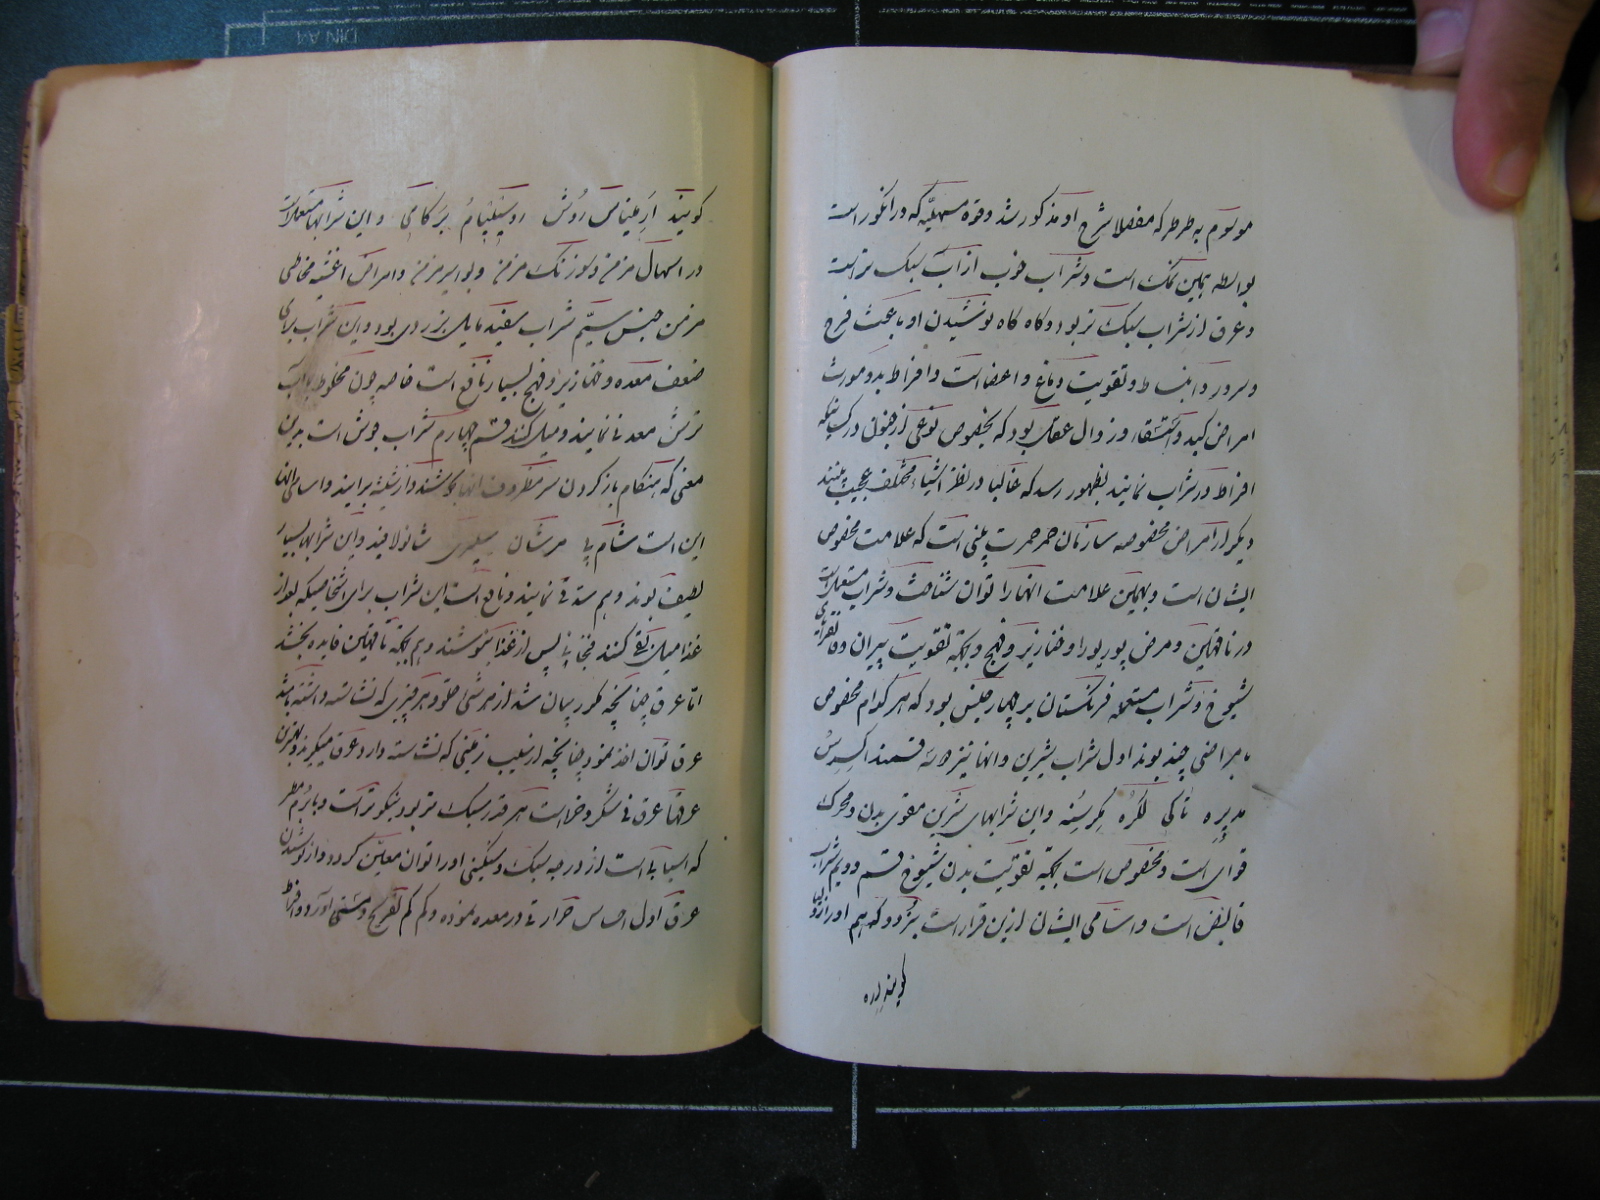 موسوم به طرطر که مفصلا شرح او مذکور شد و قوه مسهلیه که در انکور است
بواسطه همین نمک است و شراب خوب از آب سبک تر است
و عرق از شراب سبک تر بود و کاه کاه نوشیدن او باعث فرح
و سرور و انبساط و تقویت دماغ و اعضا است و افراط بدو مورث
امراض کبد و استسقاء و زوال عقل بود که بخصوص نوعی از جنون در کسانیکه
افراط در شراب نمایند بظهور رسد که غالبا در نظر اشیاء مختلف عجیب بینند
دیکر از امراض مخصوصه سازنان خمر حمرت بینی است که علامت مخصوص
ایشان است و بهمین علامت انها را توان شناخت و شراب مستعملست
در ناقهین و مرض پورپورا و خنازیر و فهج و بجهة تقویت پیران و
شیوخ و شراب مستعمله فرنکستان بر چهار جنس بود که هر کدام مخصوص
بامراضی چند بوند اول شراب شیرین و انها نیز سه قسمند اکسرس
مدیره تاکی لکره کرسینه و این شرابهای شیرین مقوی بدن و محرک
قوای است و مخصوص است بجهة تقویت بدن شیوخ قسم دویم شراب
قابض است و اسامی ایشان ازین قرار است بردو که هم او را
کویند اره
کویند ارمیتاس روش روسیلیام برکامی و این شرابها مستعملات
در اسهال مزمن و سوزنک مزمن و بواسیر مزمن و امراض اغشیه مخاطی
مزمن جنس سیم شراب سفید مایل بزردی بود و این شراب برای
ضعف معده و خنازیر و فهج بسیار نافع است خاصه چون مخلوط با آب
ترش معدنی نمایند و میل کنند قسم چهارم شراب جوش است بدین
معنی که هنکام باز کردن سر مظروف انها بجوشند و از شیشه برایند و اسامی انها
این است شام پا مرشان شاتولافید و این شرابها بسیار
لطیف بوند و هم مستی نمایند و نافع است این شراب برای اشخاصیکه بعد از
غذا میل بقی کنند فنجانی پس از غذا بنوشند و هم بجهة ناقهین فایده بخشد
اما عرق چنانچه مکرر بیان شد از هر شی حلو و هر چیزی که نشاسته داشته باشد
عرق توان اخذ نمود چنانچه از سیب زمینی که نشاسته دارد عرق میکیرند و بهترین
عرقها عرق نی شکر و خرما است هر قدر سبک تر بود نیکوتر است و بارومطر
که اسبابی است از درجه سبک و سنکینی او را توان معین کرد و از نوشیدن
عرق اول احساس حرارتی در معده نموده و کم کم تفریح و مستی آورد و افراط